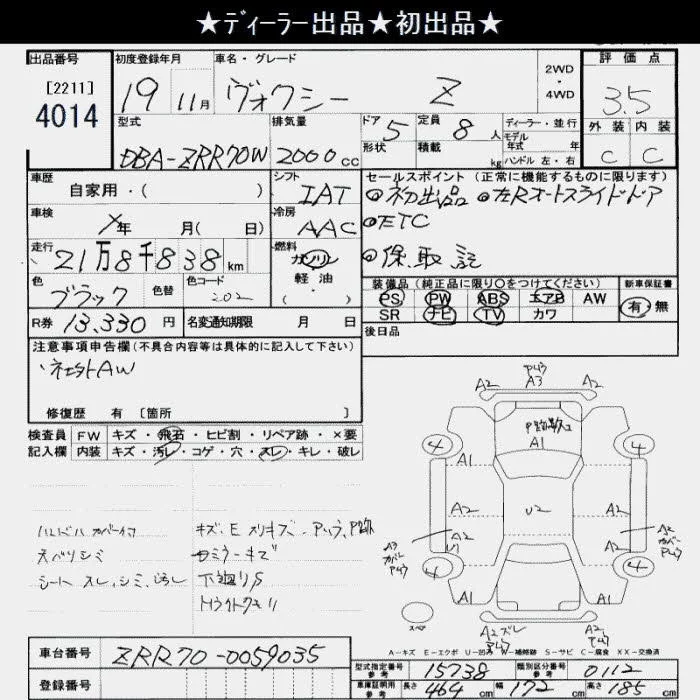 ★ディーラー出品★初出品★
出品番号
[2211]
4014
初度登録年月
19年 11月
車名・グレード
ヴォクシー Z
2WD
・
4WD
評価点
3.5
外装 内装
C C
型式
DBA-ZRR70W
排気量
2000cc
ドア 5
形状
定員 8人
積載 kg
ディーラー・並行
モデル
年式 年
ハンドル 左・右
車歴
自家用・( )
シフト
IAT
セールスポイント(正常に機能するものに限ります)
◎初出品 ◎左Rオートスライドドア
◎ETC
◎保、取、記
車検
年 月( 日)
冷房
AAC
走行
21万8千838km
燃料
ガソリン
軽油
( )
色
ブラック
色替
色コード
202
装備品(純正品に限り○をつけてください)
PS PW ABS エアB AW
SR ナビ TV カワ
新車保証書
有・無
R券 13,330円
名変通知期限 月 日
後日品
注意事項申告欄(不具合内容等は具体的に記入して下さい)
・社外AW
修復歴 有 [箇所 ]
検査員
記入欄
FW キズ・飛石・ヒビ割・リペア跡・×要
内装 キズ・汚レ・コゲ・穴・スレ・キレ・破レ
天ベリシミ
シートスレ、シミ、汚レ
キズ・E スリキズ・
ミラーキズ
下廻りS
Hライトクモリ
A2 A3 A2
A1
4 4
A1
A2 U2 A2
A2 A2
U1
A3
カバー
4 4
A1 A1
スペア
A2 ズレ A2
A-キズ E-エクボ U-凹み W-補修跡 S-サビ C-腐食 XX-交換済
車台番号 ZRR70-0059035
登録番号
型式指定番号
参考
15738
類別区分番号
参考
0112
車庫証明用
参考
長さ 464cm 幅 172cm 高さ 185cm